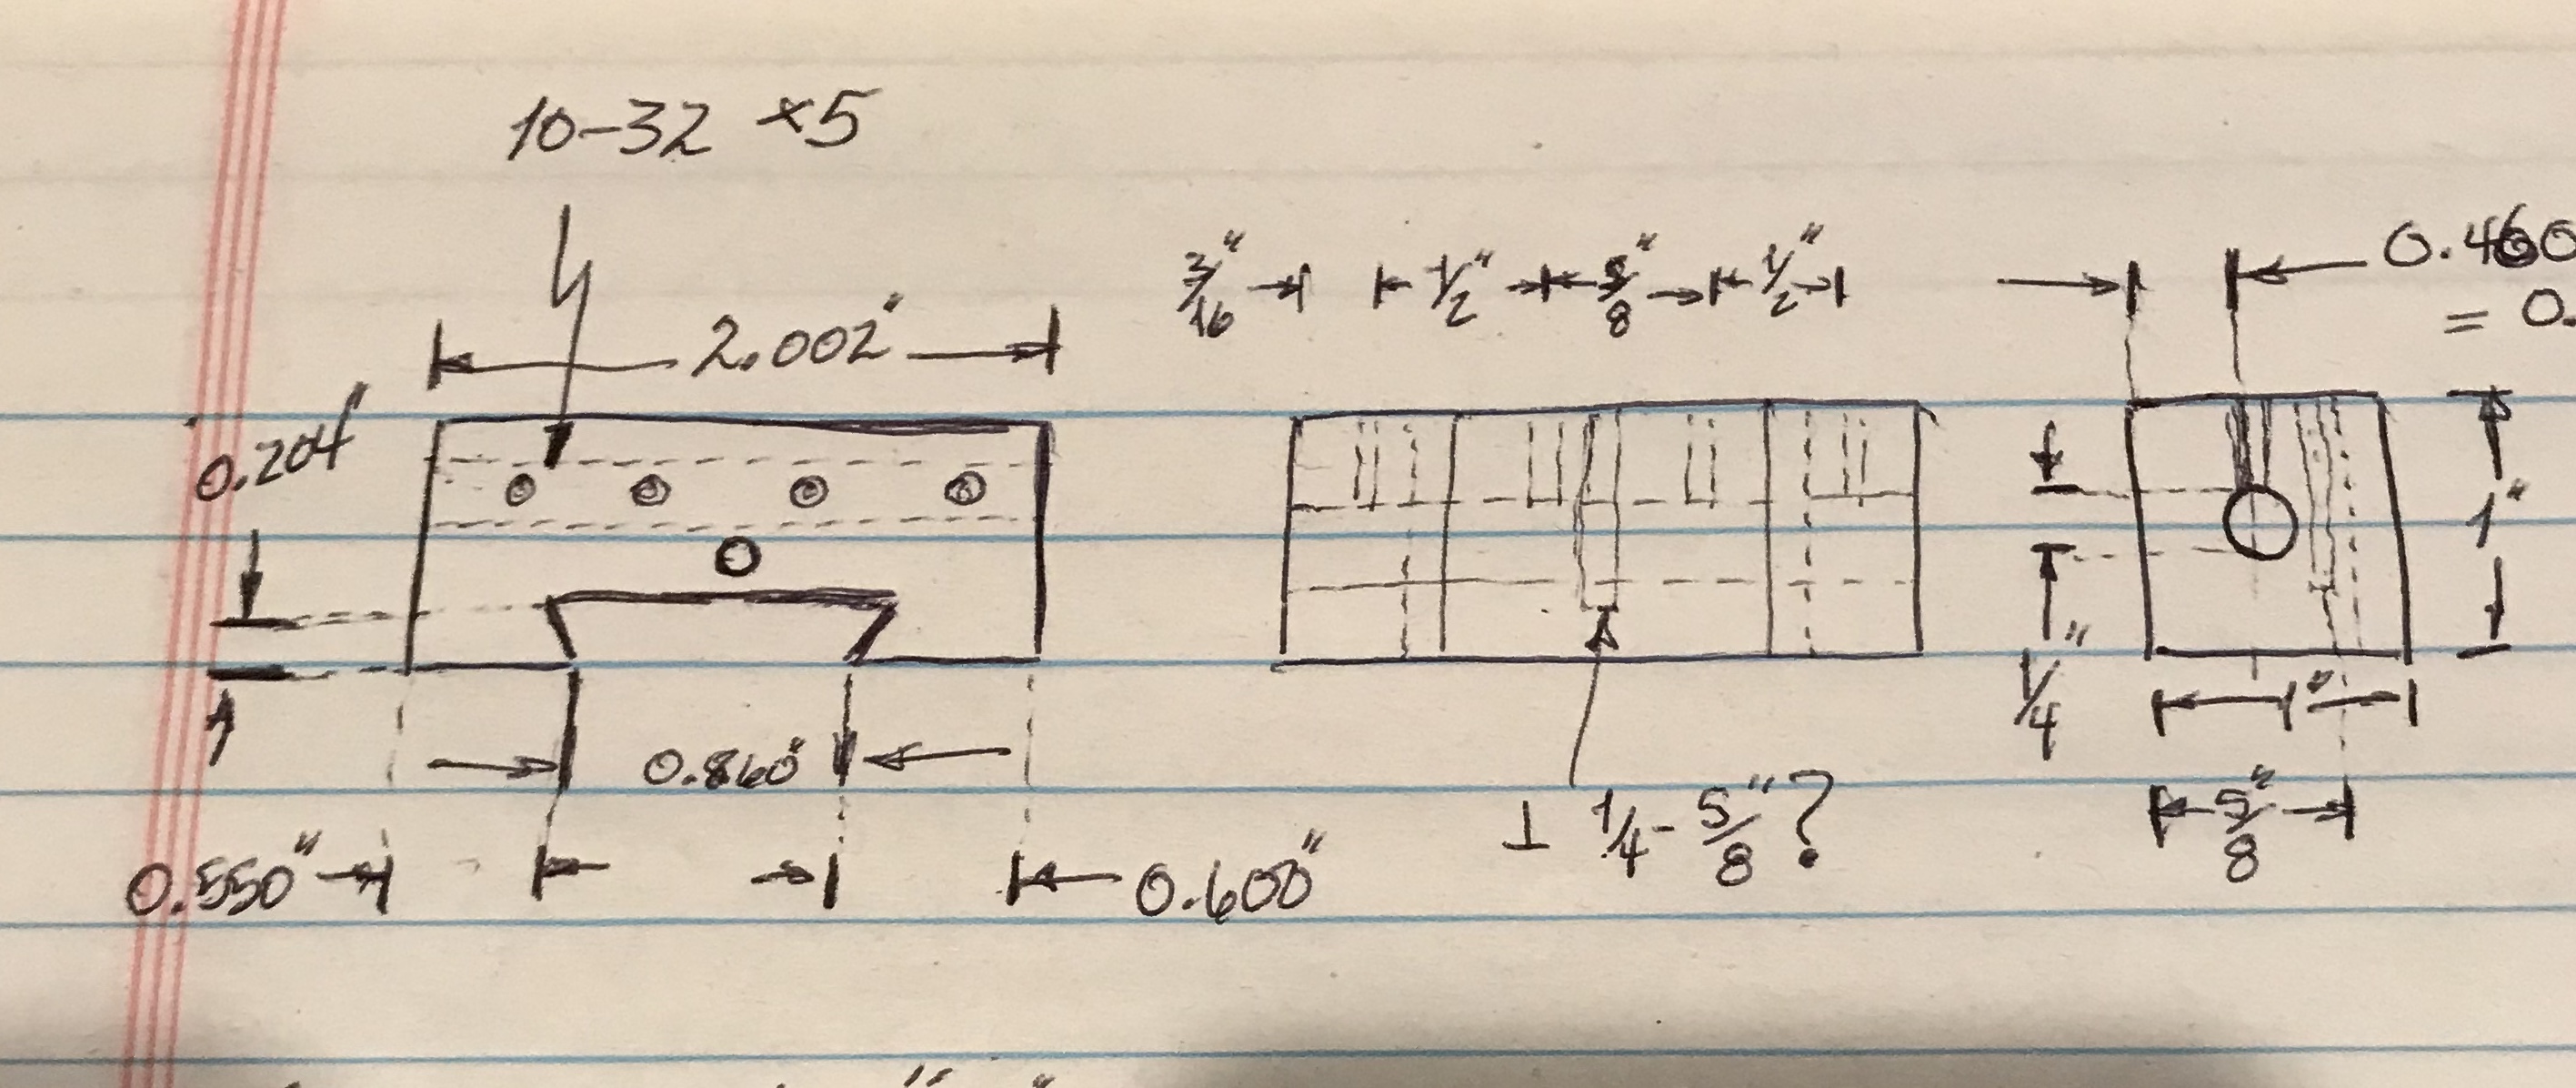 10-32 ×5
2.002"
0.204"
0.860"
0.550"
0.600"
3/16" 1/2" 5/8" 1/2"
⊥ 1/4 - 5/8" ?
0.460
= 0.
1"
1/4"
1"
5/8"